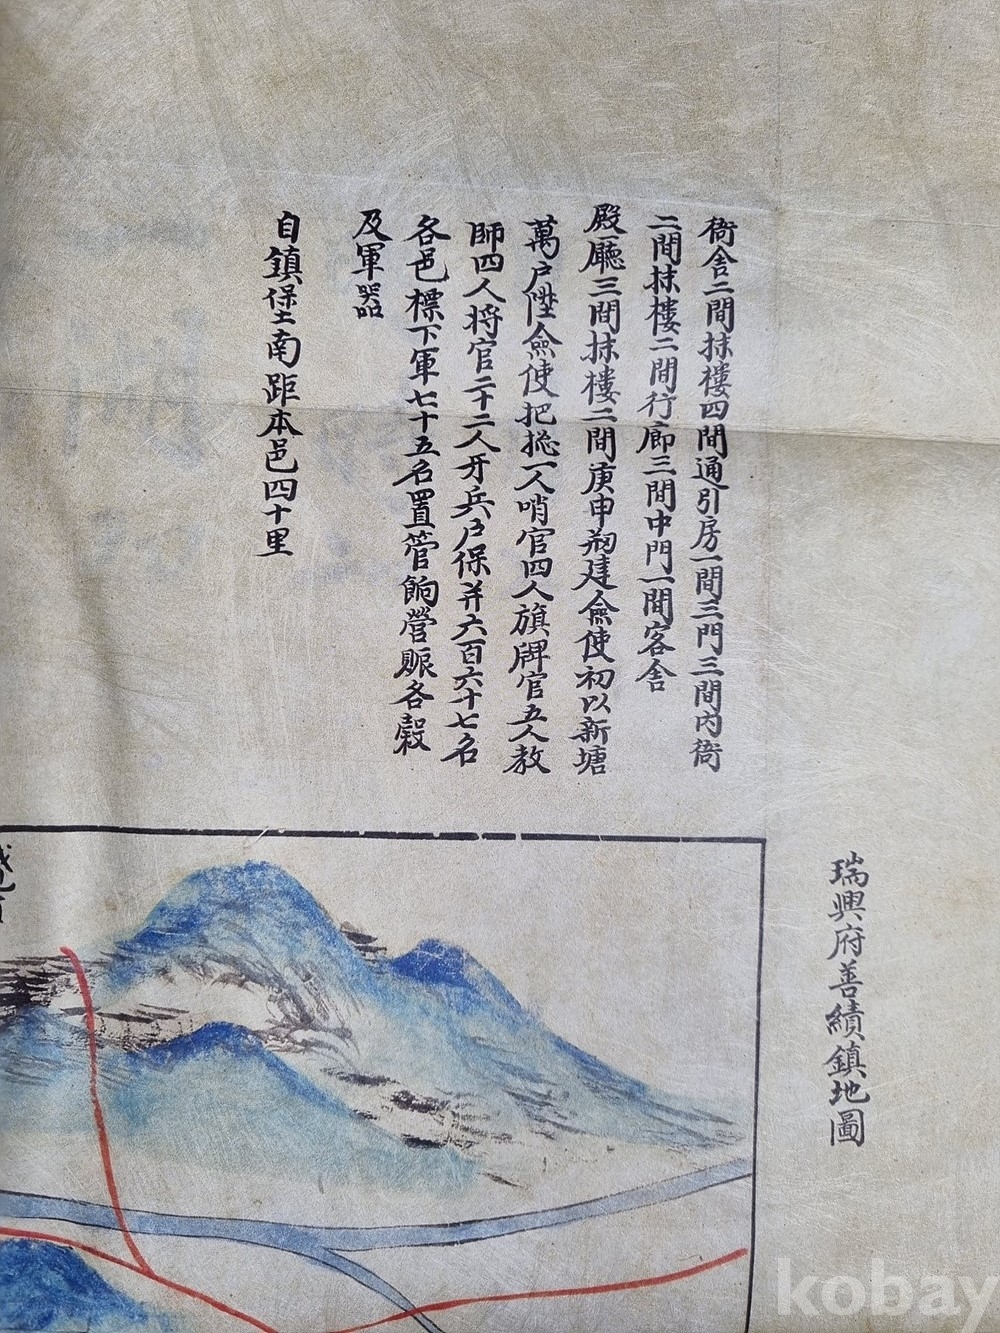 瑞興府善績鎮地圖
衙舍二間抹樓四間通引房一間三門三間內衙
二間抹樓二間行廊三間中門一間客舍
殿廳三間抹樓二間庚申刱建僉使初以新塘
萬户陞僉使把摠一人哨官四人旗牌官五人教
師四人將官二十二人牙兵户保并六百六十七名
各邑標下軍七十五名置管餉營賑各穀
及軍器
自鎮堡南距本邑四十里
kobay